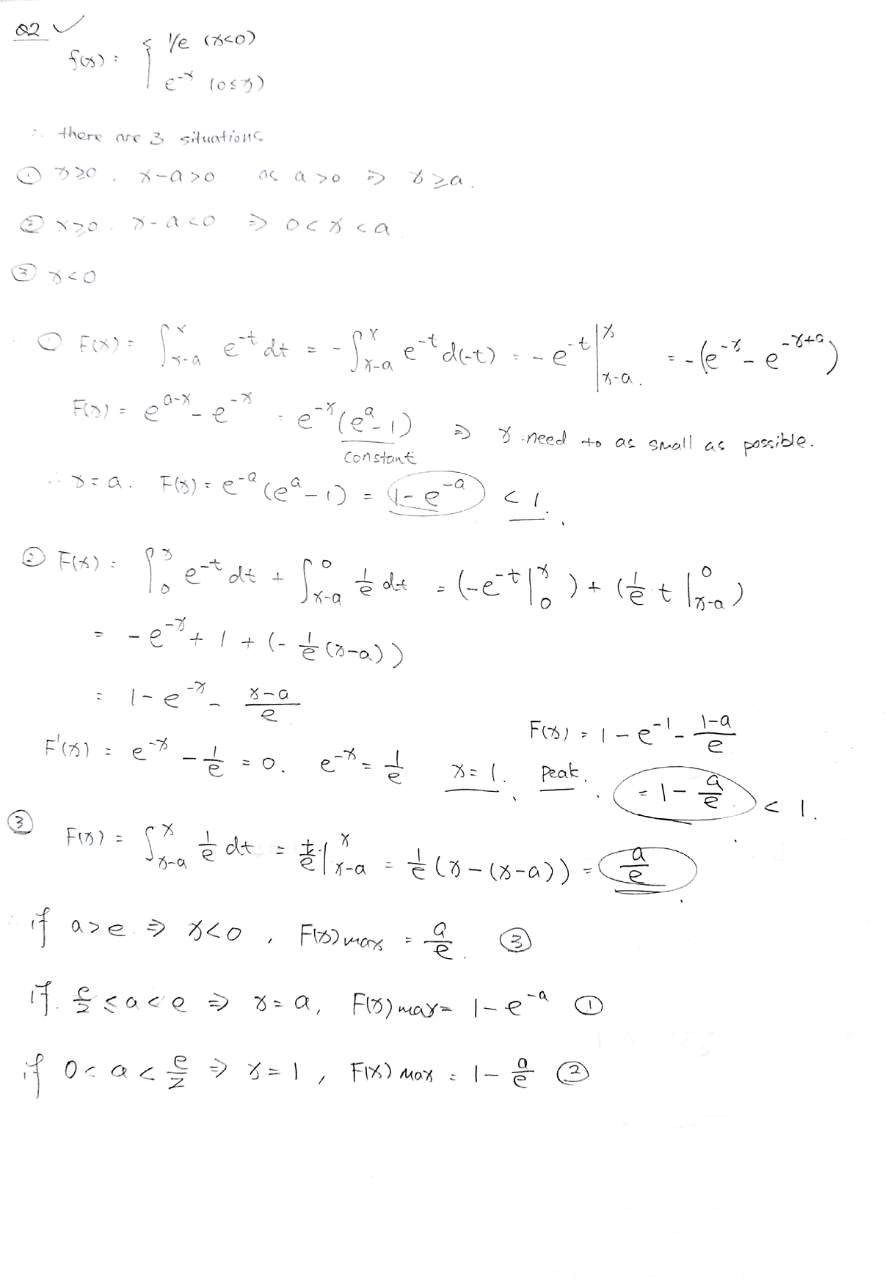 Q2 ✓
f(x) = { 1/e (x<0)
e^-x (0≤x)
∴ there are 3 situations
① x≥0 . x-a>0 as a>0 ⇒ x≥a.
② x>0 . x-a<0 ⇒ 0<x<a
③ x<0
① F(x) = ∫_{x-a}^{x} e^-t dt = -∫_{x-a}^{x} e^-t d(-t) = -e^-t |_{x-a}^{x} . = -(e^-x - e^-x+a)
F(x) = e^a-x - e^-x = e^-x (e^a - 1) ⇒ x need to as small as possible.
constant
∴ x=a. F(x) = e^-a (e^a - 1) = 1-e^-a < 1.
② F(x) = ∫_0^x e^-t dt + ∫_{x-a}^0 1/e dt = (-e^-t |_0^x) + (1/e t |_{x-a}^0)
= -e^-x + 1 + (- 1/e (x-a))
= 1 - e^-x - (x-a)/e
F'(x) = e^-x - 1/e = 0. e^-x = 1/e x=1. Peak. F(x) = 1 - e^-1 - (1-a)/e
= 1 - a/e < 1.
③ F(x) = ∫_{x-a}^{x} 1/e dt = t/e |_{x-a}^{x} = 1/e (x-(x-a)) = a/e
if a>e ⇒ x<0 , F(x) max = a/e . ③
if. e/2 ≤ a < e ⇒ x=a, F(x) max = 1-e^-a ①
if 0 < a < e/2 ⇒ x=1 , F(x) max = 1 - a/e ②